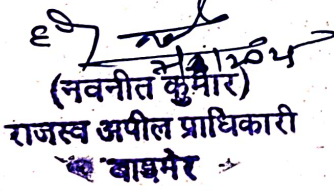 (नवनीत कुमार)
राजस्व अपील प्राधिकारी
बाडमेर